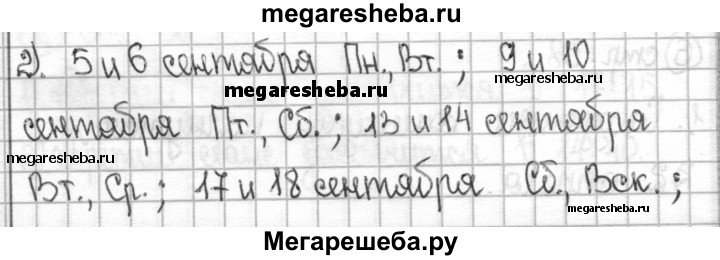 megaresheba.ru
2). 5 и 6 сентября Пн., Вт.; 9 и 10
megaresheba.ru
megaresheba.ru
сентября Пт., Сб.; 13 и 14 сентября
megaresheba.ru
Вт., Ср.; 17 и 18 сентября Сб., Вск.;
megaresheba.ru
Мегарешеба.ру